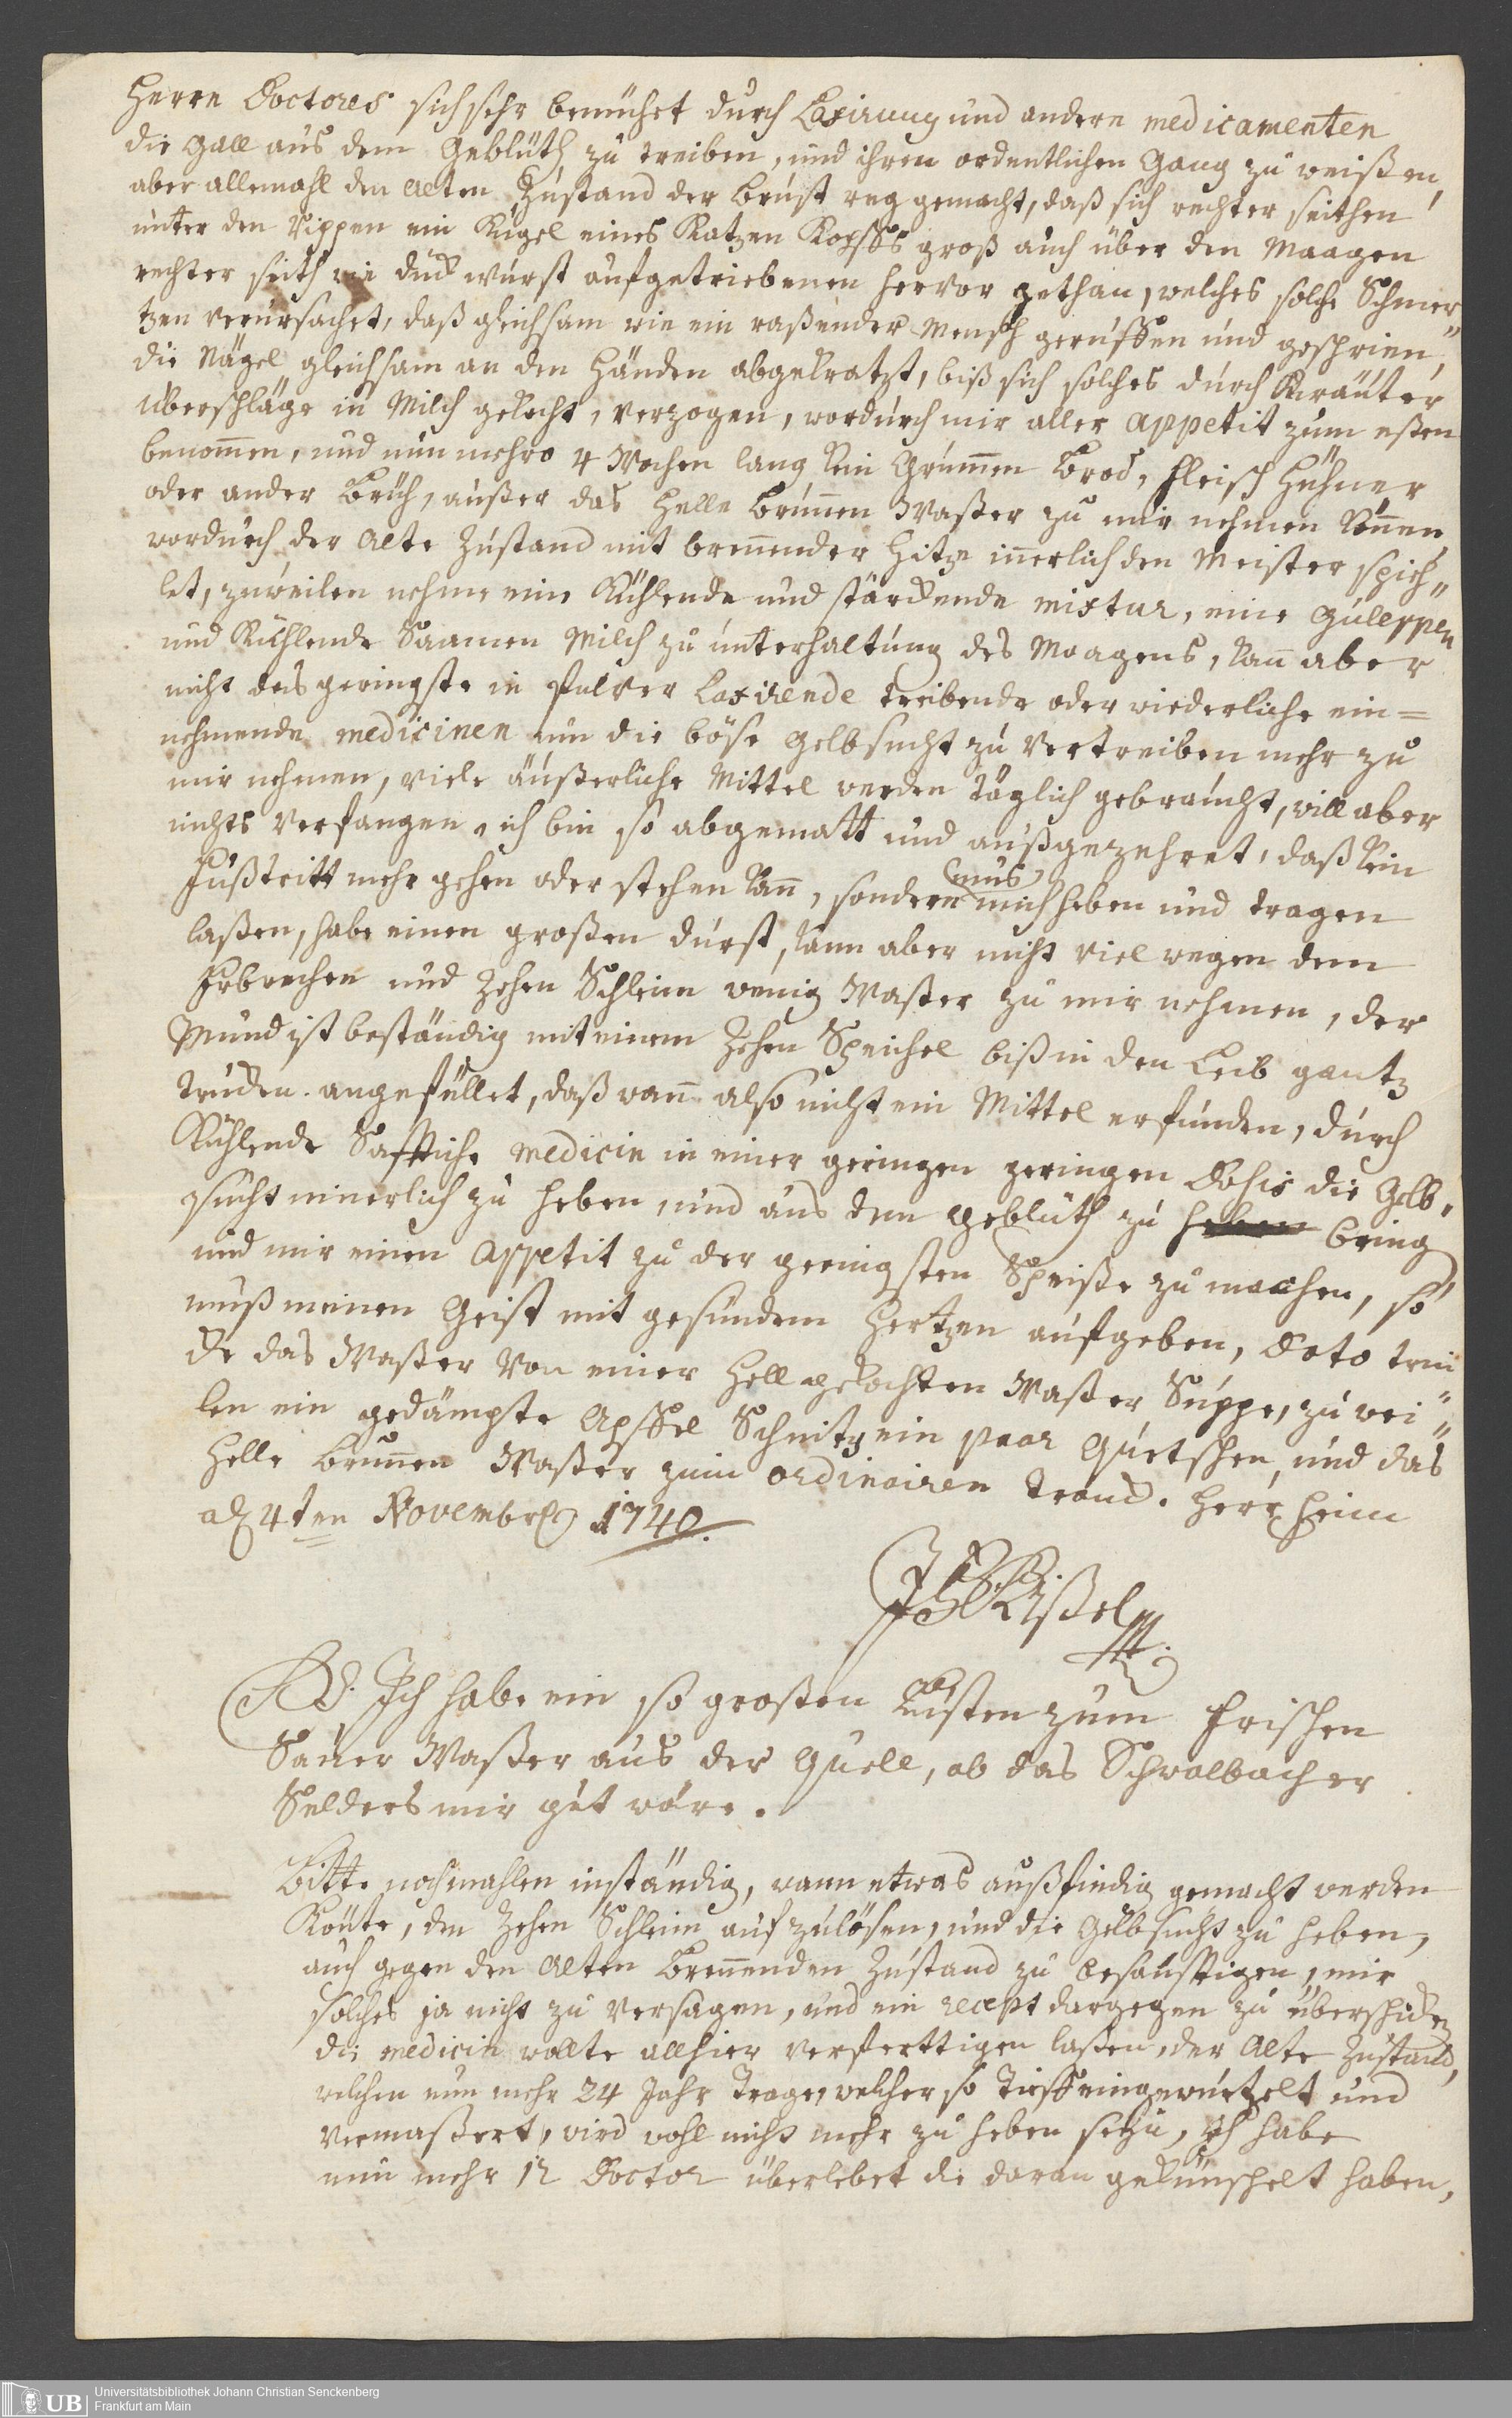 Herrn Doctores sich sehr bemühet durch Laxirung und andern medicamenten
die Gall aus dem Geblüth zu treiben, und ihren ordentlichen Gang zu weißen,
aber allemahl den alten Zustand der Brust reg gemacht, daß sich rechter seithen
unter den Rippen ein Kugel eines Katzen Kopffs groß auch über den Maagen
rechter seith wie dick wurst aufgetriebenen hervor gethan, welches solche Schmer„
tzen verursachet, daß gleichsam wie ein raßender Mensch geruffen und geschrien,
die Nägel gleichsam an den Händen abgekratzt, biß sich solches durch Kräuter
überschläge in Milch gekocht, verzogen, wordurch mir aller appetit zum eßen
benom̄en, und nun mehro 4 Wochen lang kein Grum̄en Brod, Fleisch Hühner
oder ander Brüh, außer das helle Brun̄en Waßer zu mir nehmen kön̄en,
wordurch der alte Zustand mit bren̄ender Hitze in̄erlich den Meister spieh„
let, zuweilen nehme eine Kühlende und stärckende mixtur, eine Juleppen
und Kühlende Saamen Milch zu unterhaltung des Maagens, kan̄ aber
nicht das geringste in Pulver Laxirende treibende oder wiederliche ein=
nehmende medicinen um die böse gelbsucht zu vertreiben mehr zu
mir nehmen, viele äußerliche Mittel werden täglich gebraucht, will aber
nichts verfangen, ich bin so abgematt und außgezehret, daß kein
Fußtritt mehr gehen oder stehen kan̄, sondern mus mich heben und tragen
laßen, habe einen großen durst, kann aber nicht viel wegen dem
Erbrechen und Zehen Schleim wenig Waßer zu mir nehmen, der
Mund ist beständig mit einem Zehen Speichel biß in den Leib gantz
trucken angefüllet, daß wan̄ also nicht ein Mittel erfunden, durch
Kühlende Safftiche medicin in einer geringen geringen Dosis die Gelb„
sucht innerlich zu heben, und aus dem geblüth zu heben bring
und mir einen Appetit zu der geringsten Speiße zu machen, so
muß meinen Geist mit gesundem Hertzen aufgeben, Dato trin
cke das Waßer von einer hell gekochten Waßer Suppe, zu wei„
len ein gedämpte Apffel Schnitz ein paar Quetschen, und das
helle Brun̄en Waßer zum ordinairen Tranck. Herr heim
4ten Novembris 1740.
Kißel
Ich habe ein so großen Lusten zum frischen
Sauer Waßer aus der Quell, ob das Schwalbacher
Selders mir gut wäre.
Bitte nochmahlen inständig, wann etwas außfindig gemacht werden
Könte, den Zehen Schleim aufzulösen, und die Gelbsucht zu heben,
auch gegen den alten Bren̄enden Zustand zu besänfftigen, mir
solches ja nicht zu versagen, und ein recept dargegen zu überschicken
die medicin wolte allhier verferttigen laßen, der alte Zustand,
welchen nun mehr 24 Jahr trage, welcher so tieff eingewurtzelt und
vermaßert, wird wohl nicht mehr zu heben seyn, ich habe
nun mehr 12 Doctor überlebet die daran gekünschelt haben,
Universitätsbibliothek Johann Christian Senckenberg
Frankfurt am Main
UB